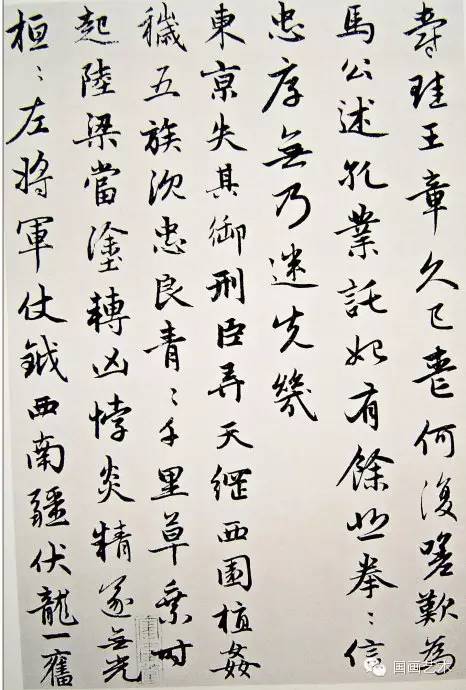 爵珪王章久已喪何復嗟歎為
馬公述孔業託始有餘悲拳〻信
忠厚無乃迷先幾
東京失其御刑臣弄天綱西園植姦
穢五族沉忠良青〻千里草乗時
起陸梁當塗轉凶悖炎精遂無光
桓〻左將軍仗鉞西南疆伏龍一奮
国画艺术